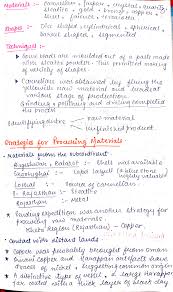 Materials :- Carnelian, Jasper, crystal, quartz,
steatite, gold, bronze, copper,
shell, faience, terracotta
Shapes :- Disc shaped, cylindrical, spherical,
barrel shaped, segmented
Techniques :-
Some beads are moulded out of a paste made
with steatite powder. This permitted making
of variety of shapes.
Carnelian was obtained by firing the
yellowish raw material and beads at
various stage of production.
Grinding, polishing and drilling completed
the process
raw material
unfinished product
Strategies for Procuring Materials
Materials from the subcontinent
Nageshwar, Balakot :- Shell was available
Shortughai :- Lapis lazuli (a blue stone
highly valued)
Lothal :- Source of carnelian
S. Rajasthan :- Steatite
Rajasthan :- Metal
Sending expedition was another strategy for
procuring raw materials
Khetri Region (Rajasthan) - Copper
Contact with distant lands
Copper was probably brought from Oman
Omani copper and Harappan artefacts have
traces of nickel, suggesting common origin
A distinctive type of vessel, a large Harappan
jar coated with a thick layer of black clay